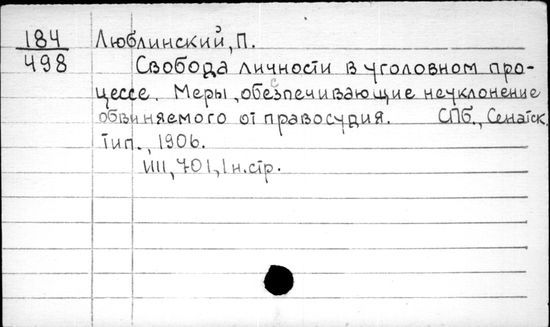 184 Люблинский, П.
498 Свобода личности в уголовном про-
цессе. Меры, обеспечивающие неуклонение
обвиняемого от правосудия. СПб., Сенатск.
тип., 1906.
701, 1 н.стр.